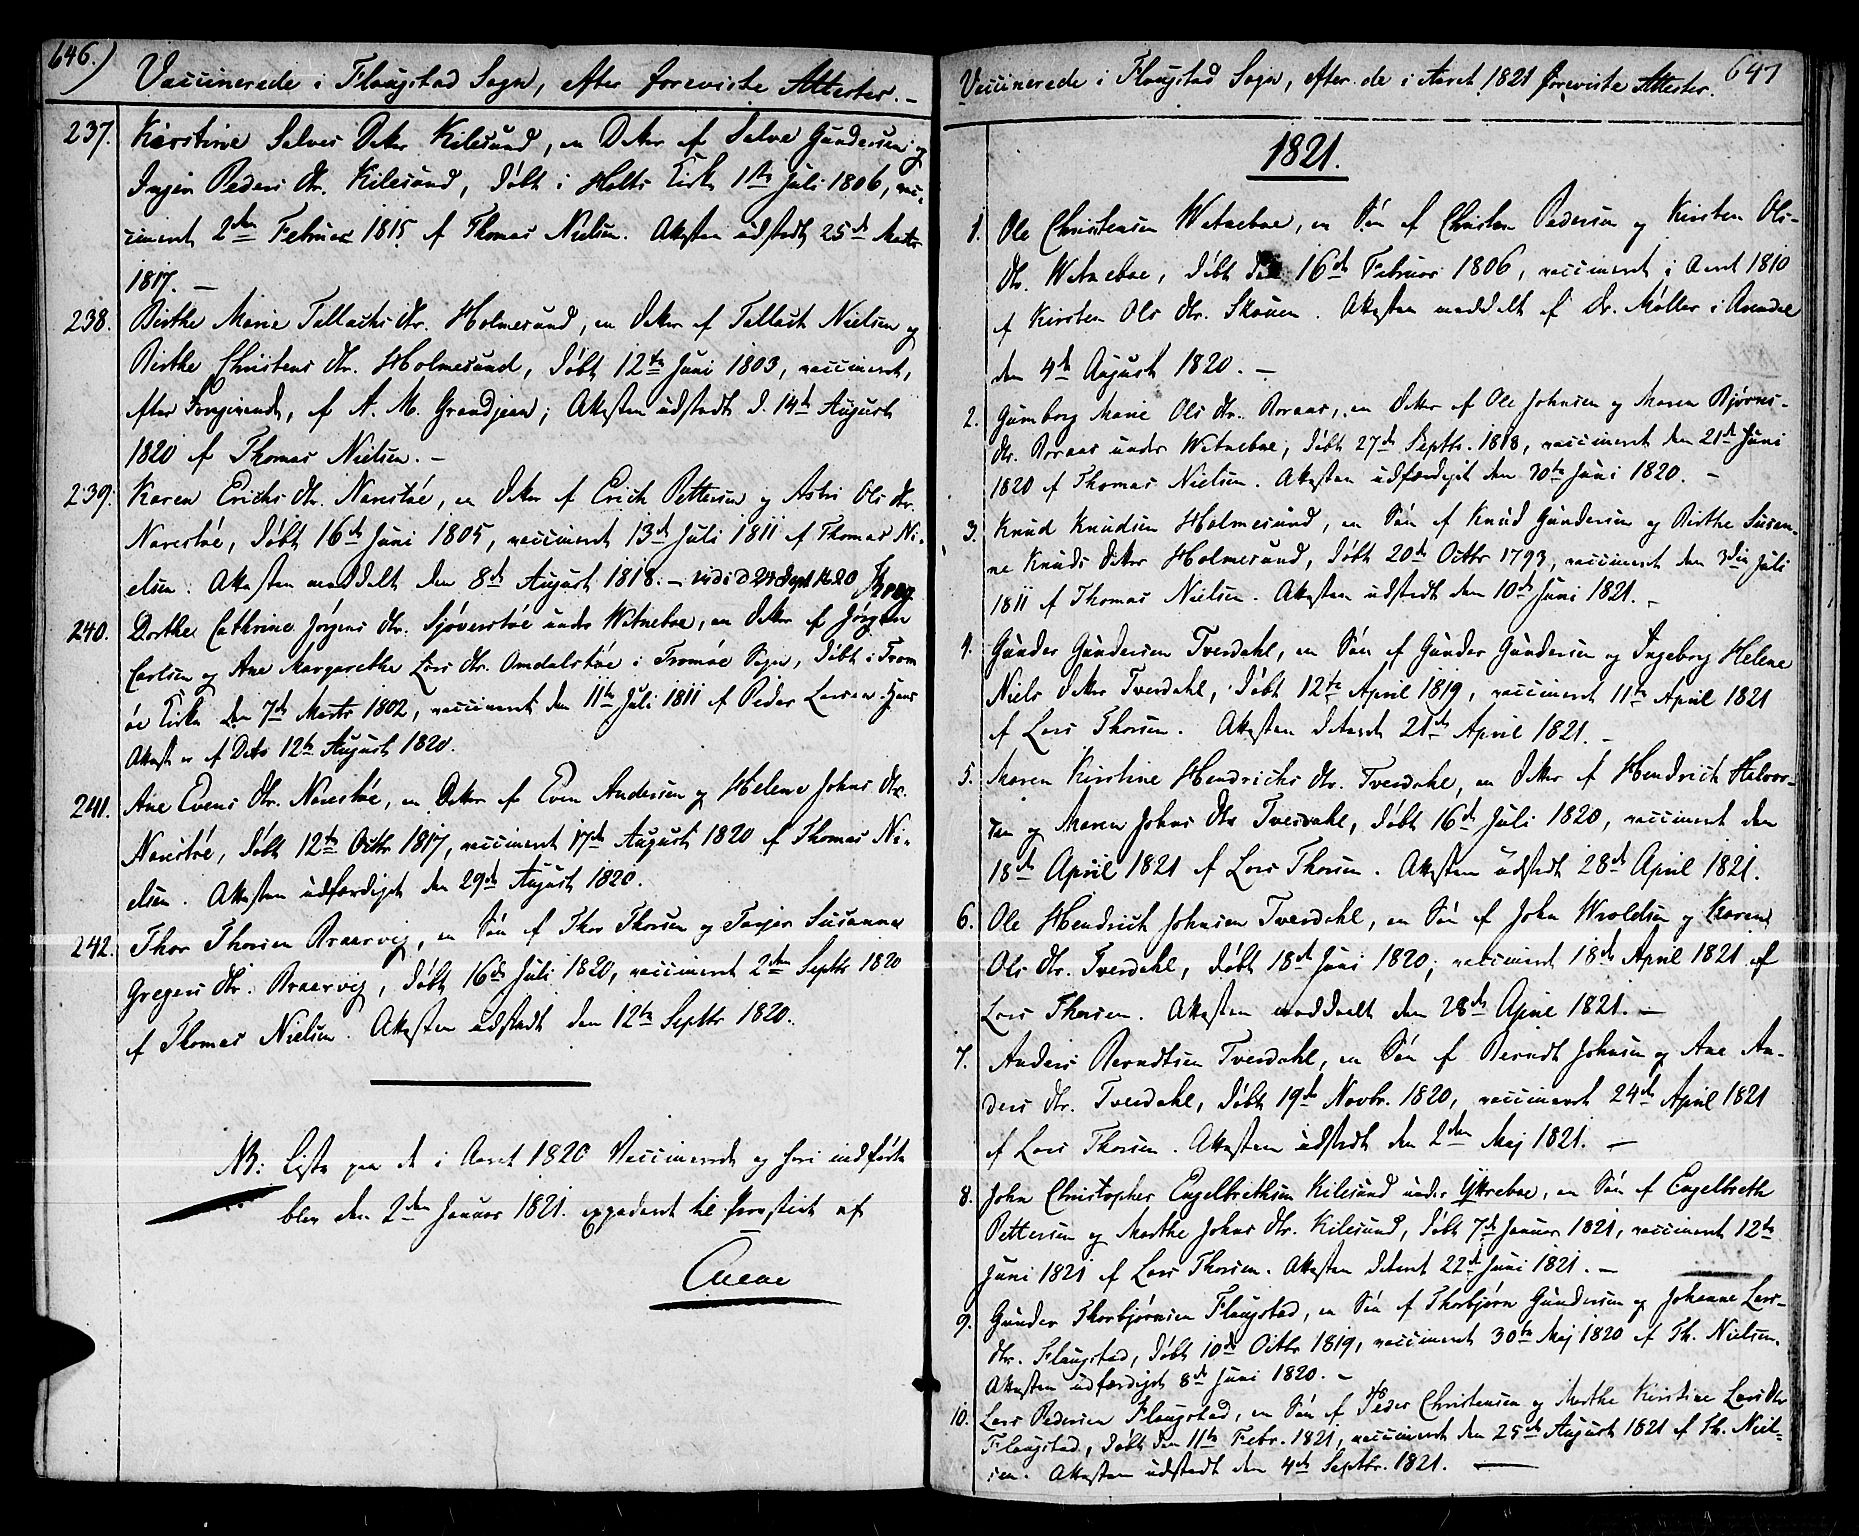 646.)
Vaccinerede i Flaugstad Sogn, efter foreviste Attester. –
237. Kirstine Salves Datter Kilesund, en Datter af Salve Gundersen og
Inger Peders Dtr. Kilesund, døbt i Holts Kirke 1ste Juli 1806, vac-
cineret 2den Februar 1815 af Thomas Nielsen. Attesten udstedt 25de Marts
1817. –
238. Birthe Marie Tallachs Dtr. Holmesund, en Datter af Tallach Nielsen og
Birthe Christens Dtr. Holmesund, døbt 12te Juni 1803, vaccineret,
efter Forgivende, af A. M. Grandjean; Attesten udstedt d. 14de August
1820 af Thomas Nielsen. –
239. Karen Erichs Dtr. Narestøe, en Datter af Erich Pettersen og Astri Ols Dtr.
Narestøe, døbt 16de Juni 1805, vaccineret 13de Juli 1811 af Thomas Ni-
elsen. Attesten meddelt den 8de August 1818. – vidi d
240. Dorthe Cathrine Jørgens Dtr. Sjøverstøe under Watnebøe, en Datter af Jørgen
Carlsen og Ane Margarethe Lars Dtr. Omdalstøe i Tromøe Sogn, døbt i Trom
øe Kirke den 7de Marts 1802, vaccineret den 11te Juli 1811 af Peder Larsen
Attest er af Dato 12te August 1820.
241. Ane Evens Dtr. Narestøe, en Datter af Even Andersen og Helene Johns Dtr.
Narestøe, døbt 12te Octbr 1817, vaccineret 17de August 1820 af Thomas Ni-
elsen. Attesten udfærdiget den 29de August 1820.
242. Thor Thorsen Braarvig, en Søn af Thor Thorsen og Tarjer Susanna
Gregers Dtr. Braarvig, døbt 16de Juli 1820, vaccineret 2den Septbr 1820
af Thomas Nielsen. Attesten udstedt den 12te Septbr 1820.
NB: Liste paa de i Aaret 1820 Vaccinerede og her indførte
blev den 2den Januar 1821 expederet til Provstiet af
647
Vaccinerede i Flaugstad Sogn, efter de i Aaret 1821 foreviste Attester.
1821.
1. Ole Christensen Watnebøe, en Søn af Christen Pedersen og Kirsten Ols-
Dtr. Watnebøe, døbt den 16de Februar 1806, vaccineret i Aaret 1810
af Kirsten Ols Dtr. Skouen. Attesten meddelt af Dr. Møller i Arendal
den 4de August 1820. –
2. Gunborg Marie Ols Dtr. Boraas, en Datter af Ole Johnsen og Maren Bjørns-
Dtr. Boraas under Watnebøe, døbt 27de Septbr. 1818, vaccineret den 21de Juni
1820 af Thomas Nielsen. Attesten udfærdiget den 30te Juni 1820. –
3. Knud Knudsen Holmesund, en Søn af Knud Gundersen og Birthe Susan-
ne Knuds Datter Holmesund, døbt 20de Octbr 1793, vaccineret den 3die Juli
1811 af Thomas Nielsen. Attesten udstedt den 10de Juni 1821. –
4. Gunder Gundersen Tverdahl, en Søn af Gunder Gundersen og Ingeborg Helene
Niels Datter Tverdahl, døbt 12te April 1819, vaccineret 11te April 1821
af Lars Thorsen. Attesten dateret 21de April 1821. –
5. Maren Kirstine Hendrichs Dtr. Tverdahl, en Datter af Hendrich Halvor-
sen og Maren Johns Dtr Tverdahl, døbt 16de Juli 1820, vaccineret den
18de April 1821 af Lars Thorsen. Attesten udstedt 28de April 1821.
6. Ole Hendrich Johnsen Tverdahl, en Søn af John Wroldsen og Karen
Ols Dtr. Tverdahl, døbt 18de Juni 1820, vaccineret 18de April 1821 af
Lars Thorsen. Attesten meddeelt den 28de April 1821. –
7. Anders Berndtsen Tverdahl, en Søn af Berndt Johnsen og Ane An-
ders Dtr. Tverdahl, døbt 19de Novbr. 1820, vaccineret 24de April 1821
af Lars Thorsen. Attesten udstedt den 2den Maj 1821. –
8. John Christopher Engelbrethsen Kilesund under Yttrebøe, en Søn af Engelbreth
Pettersen og Marthe Johns Dtr. Kilesund, døbt 7de Januar 1821, vaccineret 12te
Juni 1821 af Lars Thorsen. Attesten dateret 22de Juni 1821. –
9. Gunder Thorbjørnsen Flaugstad, en Søn af Thorbjørn Gundersen og Johanne Lars-
Dtr. Flaugstad, døbt 10de Octbr 1819, vaccineret 30te Maj 1820 af Th. Nielsen.
Attesten udfærdiget 8de Juni 1820. –
10. Lars Pedersen Flaugstad, en Søn af Peder Christensen og Marthe Kirstine Lars Dtr
Flaugstad, døbt den 11te Febr. 1821, vaccineret den 25de August 1821 af Th. Niel-
sen. Attesten udstedt den 4de Septbr. 1821. –